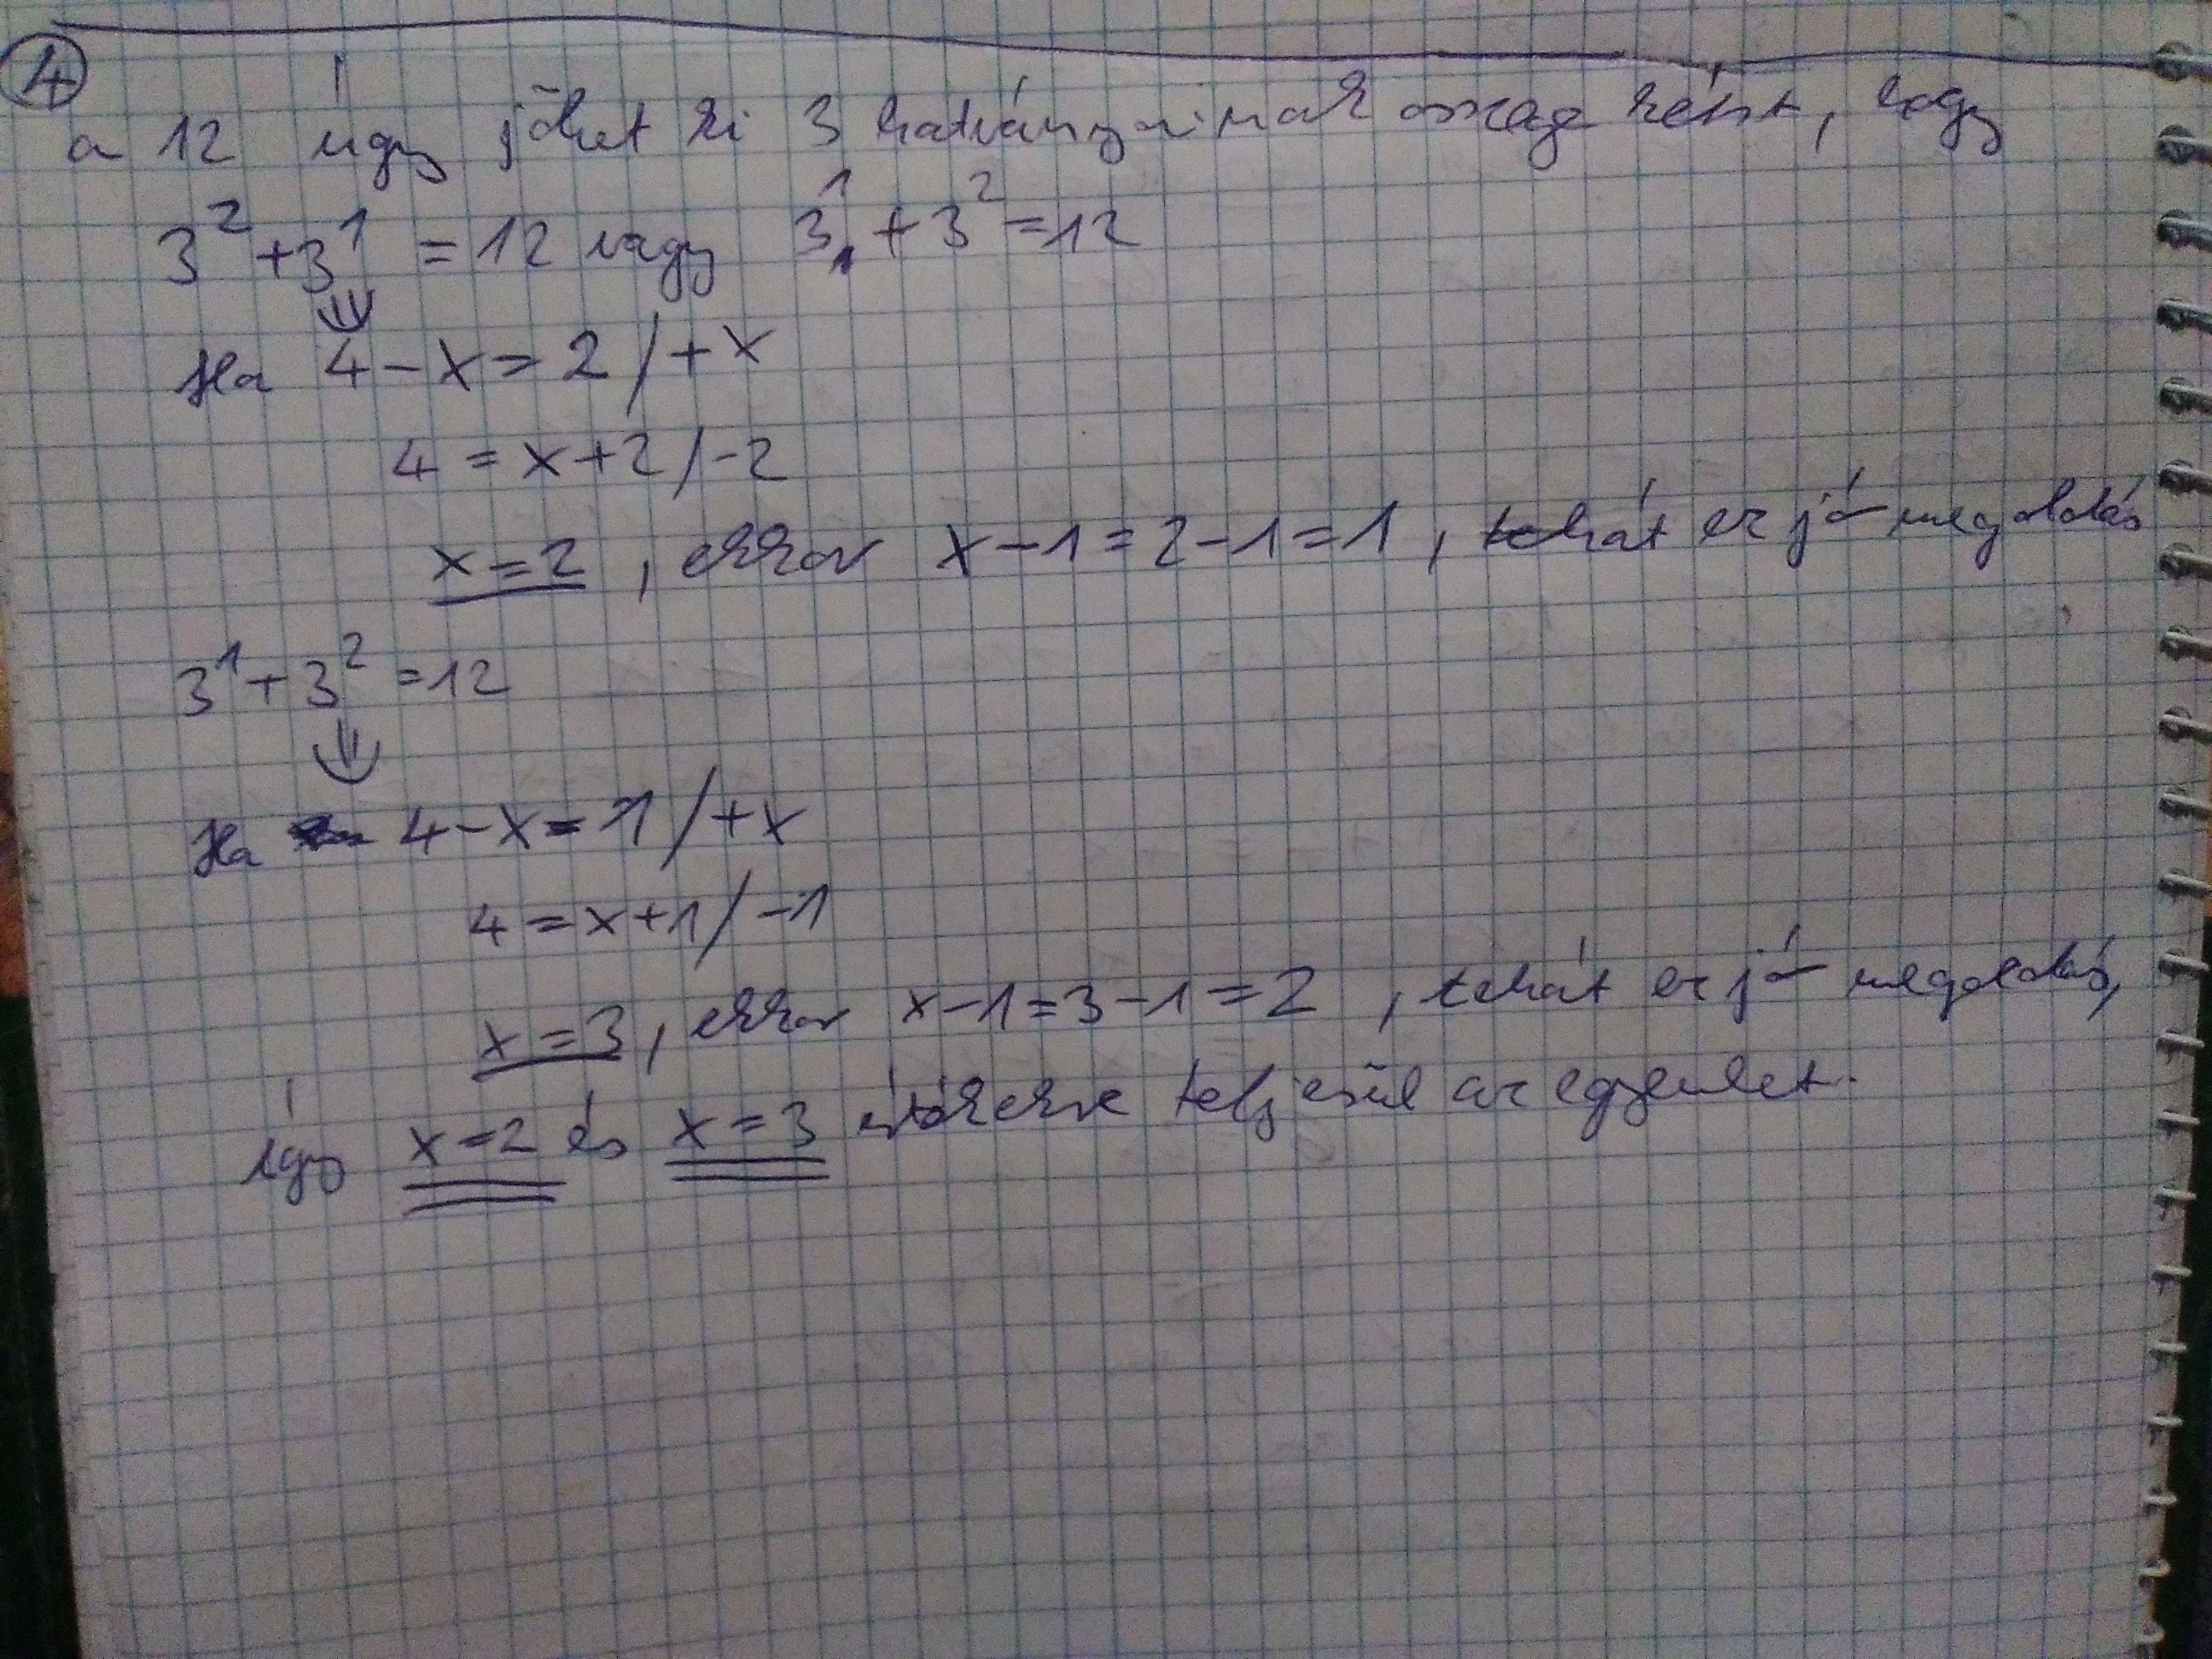 4
a 12 úgy jöhet ki 3 hatványainak összegeként, hogy
3² + 3¹ = 12 vagy 3¹ + 3² = 12
⇓
Ha 4 - x = 2 / + x
4 = x + 2 / - 2
x = 2, ekkor x - 1 = 2 - 1 = 1, tehát ez jó megoldás
3¹ + 3² = 12
⇓
Ha 4 - x = 1 / + x
4 = x + 1 / - 1
x = 3, ekkor x - 1 = 3 - 1 = 2, tehát ez jó megoldás,
így x = 2 és x = 3 értékekre teljesül az egyenlet.